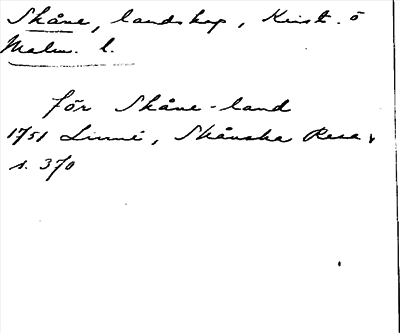 Skåne, landskap, Krist. o
Malm. l.
för Skåne-land
1751 Linné, Skånska Resa,
s. 370